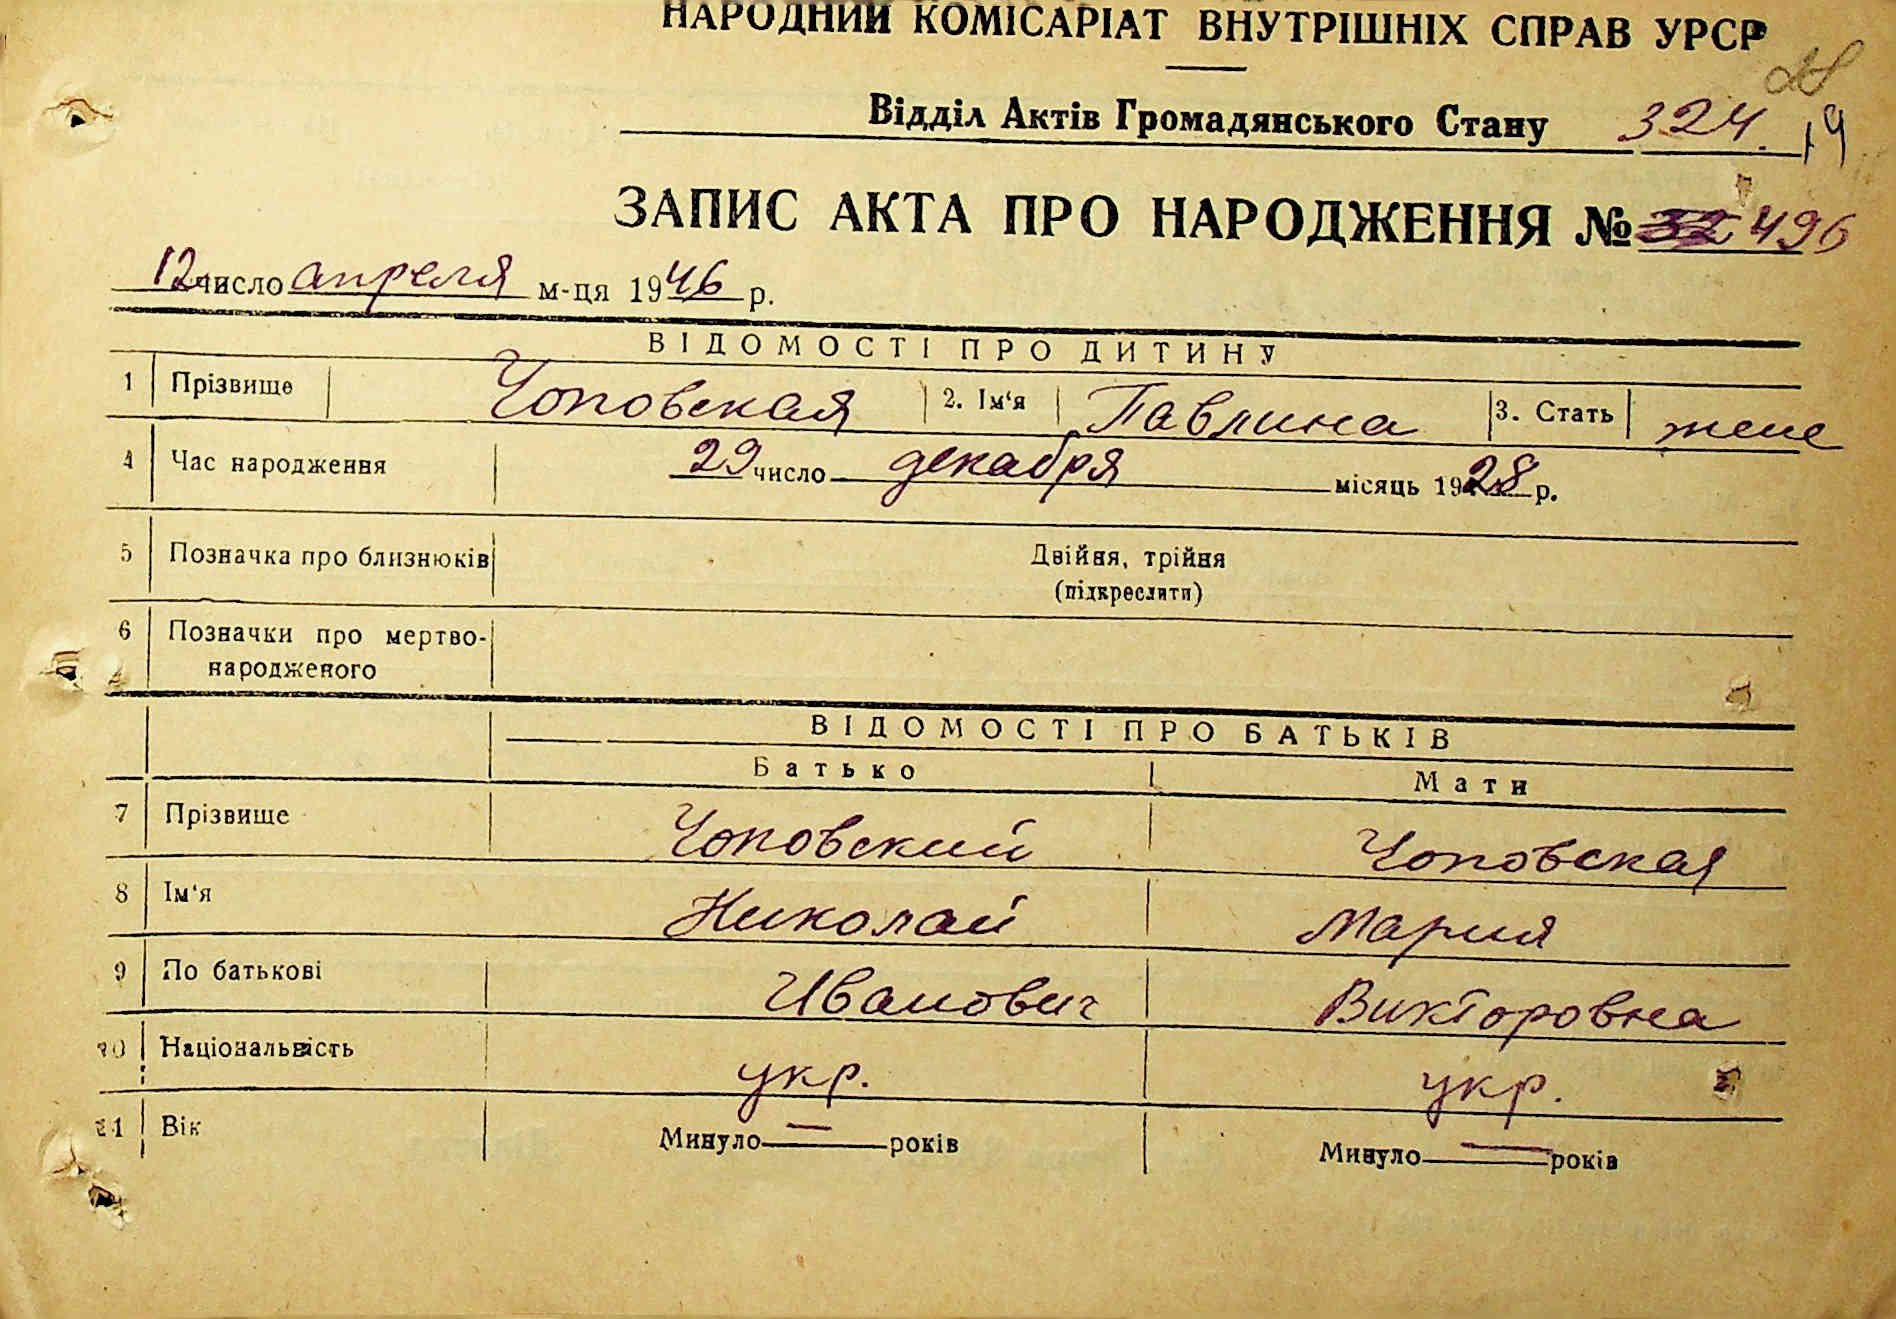 НАРОДНИЙ КОМІСАРІАТ ВНУТРІШНІХ СПРАВ УРСР
28
Відділ Актів Громадянського Стану 324. 19
ЗАПИС АКТА ПРО НАРОДЖЕННЯ № 32 496
12 число апреля м-ця 1946 р.
ВІДОМОСТІ ПРО ДИТИНУ
1 Прізвище Чоповская 2. Ім'я Павлина 3. Стать жене
4 Час народження 29 число декабря місяць 1928 р.
5 Позначка про близнюків Двійня, трійня
(підкреслити)
6 Позначки про мертво-
народженого
ВІДОМОСТІ ПРО БАТЬКІВ
Батько Мати
7 Прізвище Чоповский Чоповская
8 Ім'я Николай Мария
9 По батькові Иванович Викторовна
10 Національність укр. укр.
11 Вік Минуло — років Минуло — років